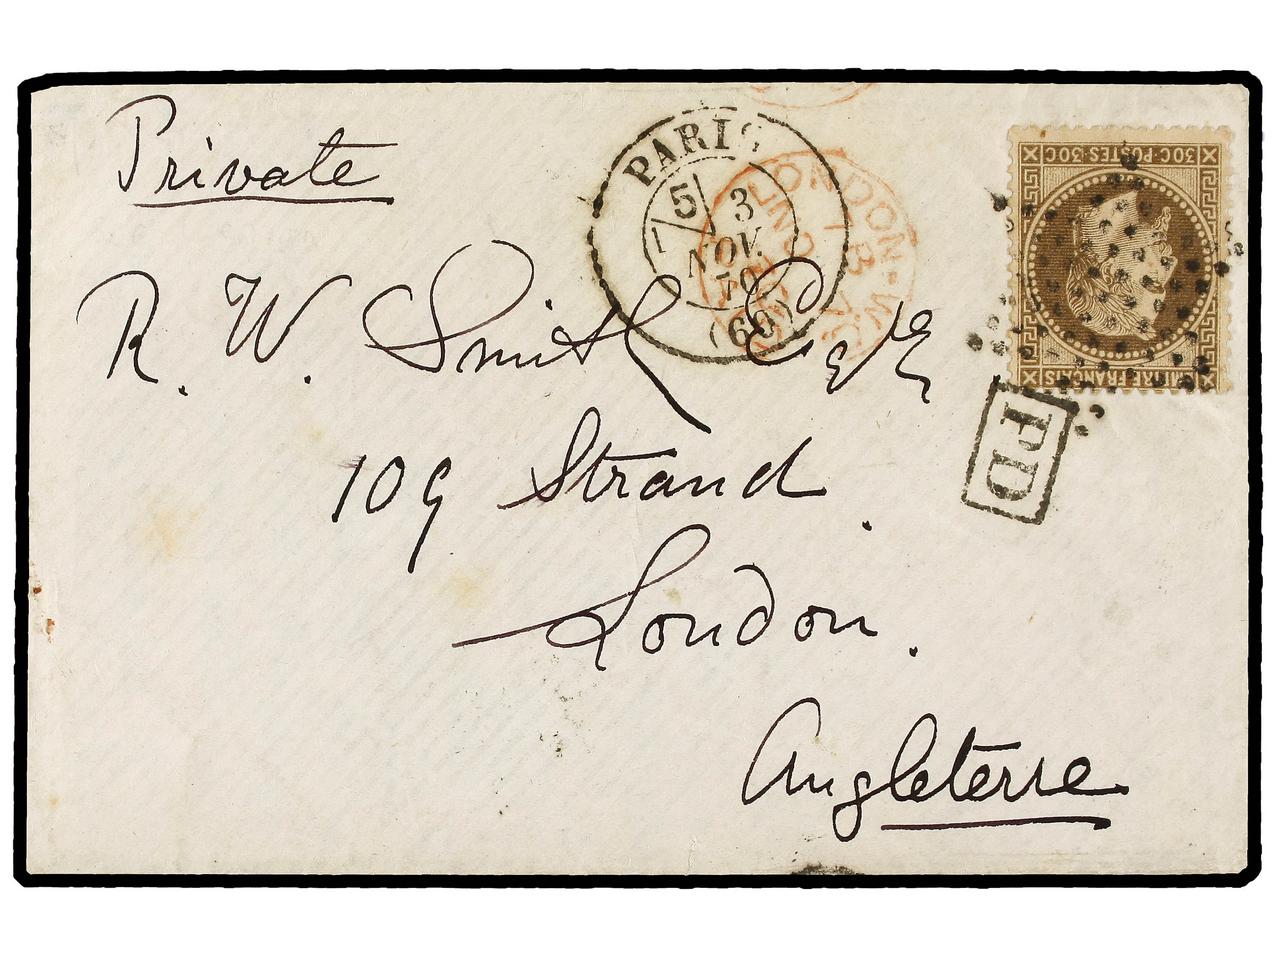 Private
PARIS
5
3
NOV.
70
(60)
LONDON-W.C
30C·POSTES·30C
EMPIRE FRANÇAIS
PD
R. W. Smith Esqre
109 Strand.
London.
Angleterre